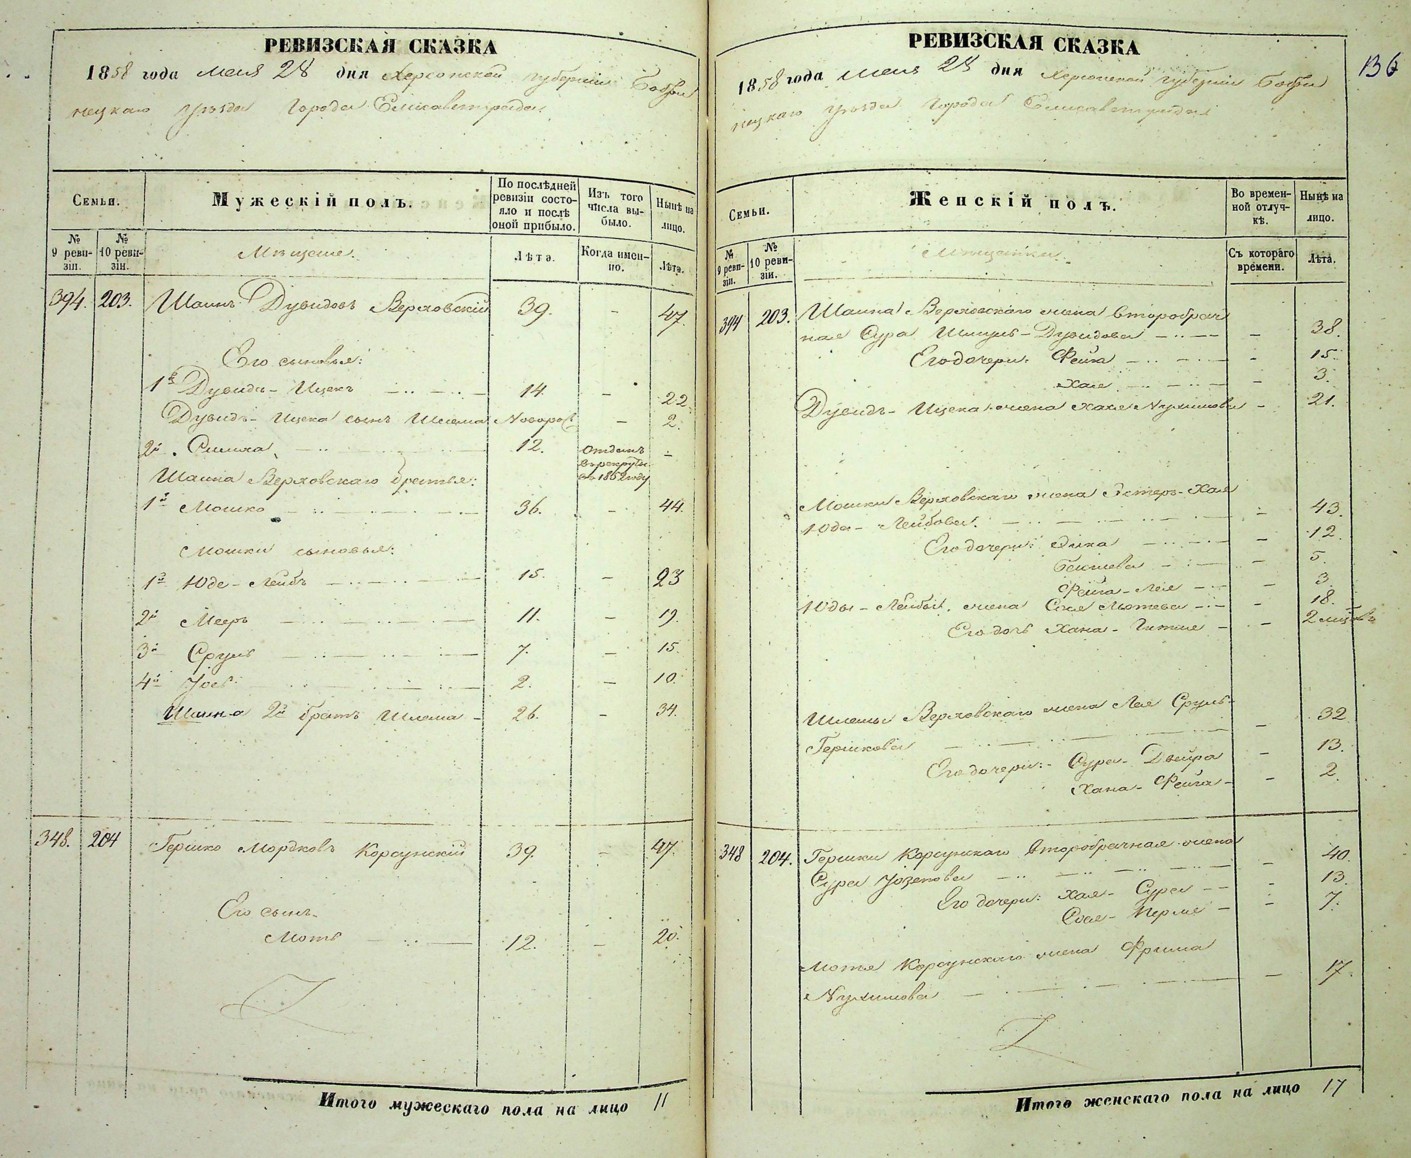 РЕВИЗСКАЯ СКАЗКА
1858 года мая 28 дня Херсонской губернии Бобри
нецкаго уѣзда Города Елисаветграда
Семьи.
Мужескій полъ.
По послѣдней ревизіи состояло и послѣ оной прибыло.
Изъ того числа выбыло.
Нынѣ на лицо.
№ 9 ревизіи.
№ 10 ревизіи.
Мѣщане.
Лѣта.
Когда именно.
Лѣта.
394. 203. Шаинъ Дувидовъ Верховскій 39. - 47
Его сыновья:
1й Дувидъ-Ицекъ 14. - 22
Дувидъ-Ицека сынъ Шлема Новорож - 2.
2й Симха 12. отданъ въ рекруты въ 1852 году -
Шаина Верховскаго братья:
1й Мошко 36. - 44.
Мошки сыновья:
1й Юде-Лейбъ 15. - 23
2й Мееръ 11. - 19.
3й Сруль 7. - 15.
4й Іосъ 2. - 10.
Шаина 2й братъ Шлема 26. - 34.
348. 204 Гершко Мордковъ Корсунскій 39. - 47.
Его сынъ
Моть 12. - 20.
Итого мужескаго пола на лицо 11
РЕВИЗСКАЯ СКАЗКА
136
1858 года мая 28 дня Херсонской губерніи Бобри
нецкаго уѣзда Города Елисаветграда
Семьи.
Женскій полъ.
Во временной отлучкѣ.
Нынѣ на лицо.
№ 9 ревизіи.
№ 10 ревизіи.
Мѣщанки.
Съ котораго времени.
Лѣта.
394 203. Шаина Верховскаго жена второбрач
ная Сура Шмуль-Дувидова - 38.
Его дочери: Фейга - 15.
Хая - 3.
Дувидъ-Ицека жена Хая Нухимова - 21.
Мошки Верховскаго жена Эстеръ-Хая
Юда-Лейбова. - 43.
Его дочери: - 12.
- 5.
Фейга-Лея - 3
Юды-Лейбы жена Сося Мотева - 18.
Его дочь Хана-Гитля - 2
Шлемы Верховскаго жена Лея Сруль-
Гершкова - 32
Его дочери: Сура-Двойра - 13.
Хана-Фейга - 2.
348 204. Гершки Корсунскаго второбрачная жена
Сура Іозепова - 40.
Его дочери: Хая-Сура - 13.
Сося-Перля - 7.
Мотя Корсунскаго жена Фрима
Нухимова - 17.
Итого женскаго пола на лицо 17